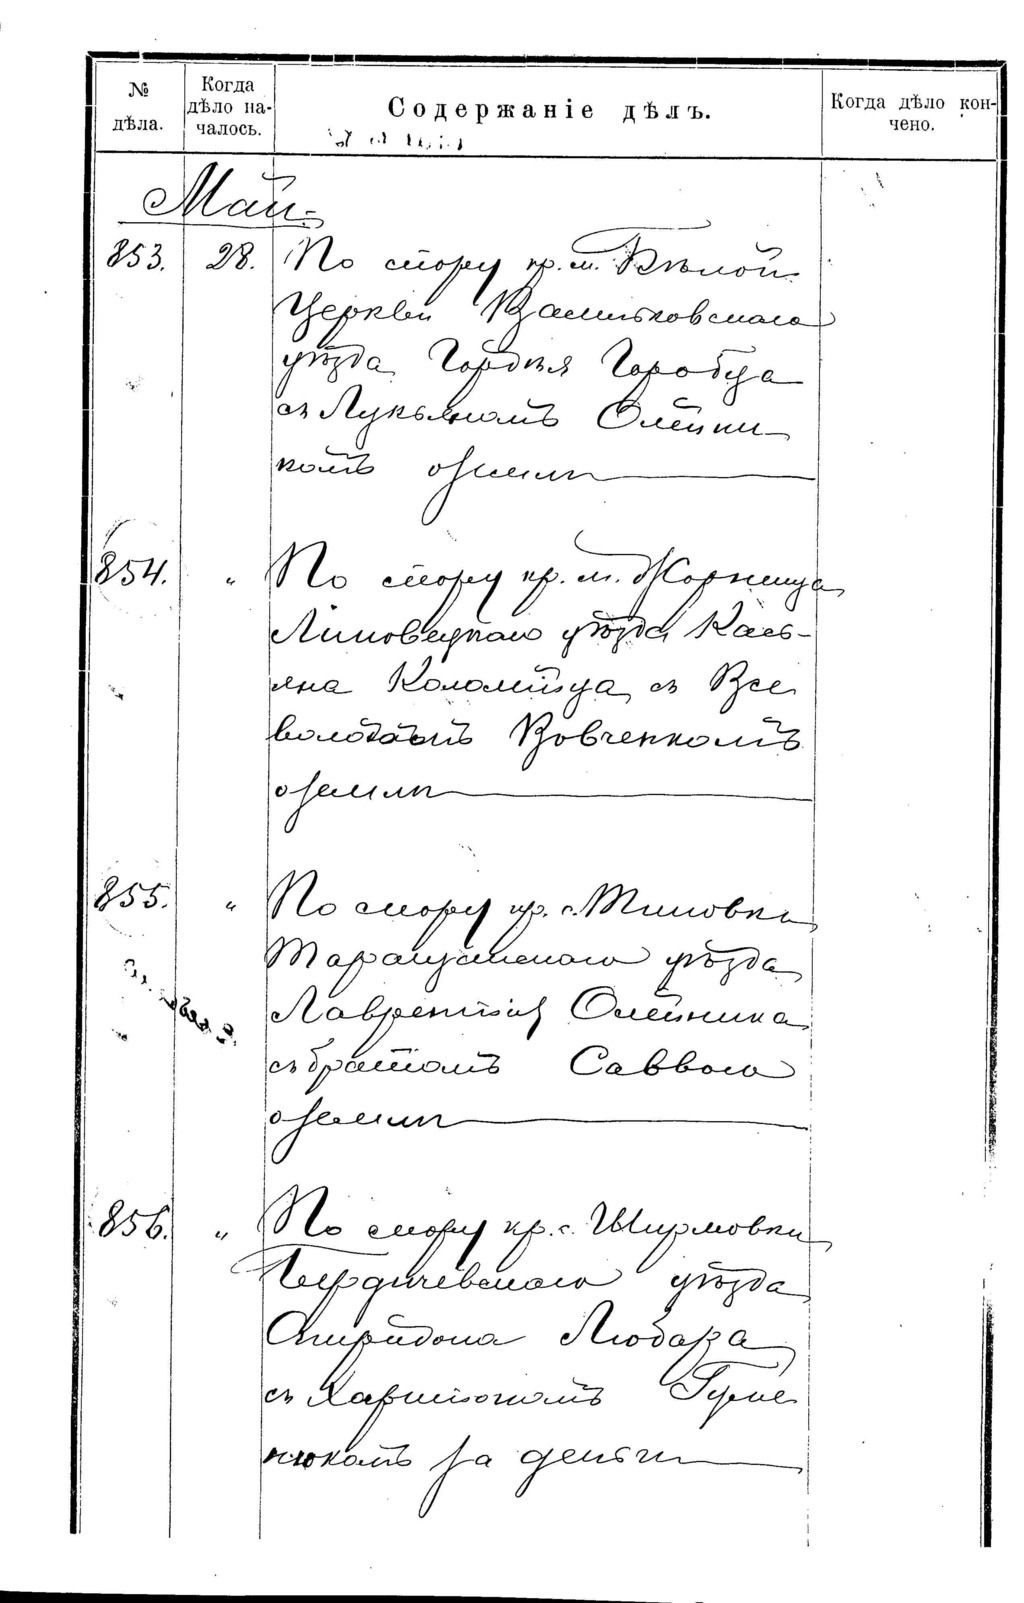 № дѣла.
Когда дѣло на-
чалось.
Содержаніе дѣлъ.
Когда дѣло кон-
чено.
Май
853. 28. По спору кр. м. Бѣлой
Церкви Васильковскаго
уѣзда Гордѣя Горобца
съ Лукьяномъ Олейни
комъ о земли
854. „ По спору кр. м. Жорнища
Липовецкаго уѣзда Кась-
яна Коломійца съ Все
володомъ Вовченкомъ
о земли
855. „ По спору кр. с. Тиновки
Таращанскаго уѣзда
Лаврентія Олейника
съ братомъ Саввою
о земли
856. „ По спору кр. с. Ширмовки
Бердичевскаго уѣзда
Спиридона Любара
съ Харитономъ Гуме
нюкомъ за деньги